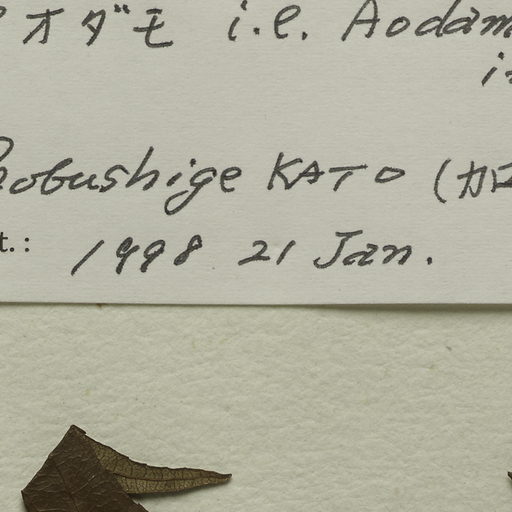 オダモ i.e. Aodam
i
hobushige KATO (加
t.: 1998 21 Jan.